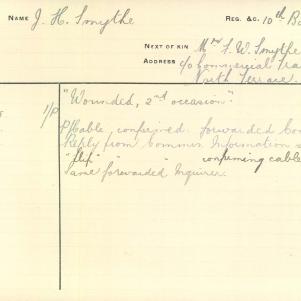 NAME J. H. Smythe REG. &C. 10th B
NEXT OF KIN Mr S. W. Smythe
ADDRESS c/o Commercial Tra
North Terrace
1/P "Wounded, 2nd occasion"
P/Cable, confirmed. forwarded Co
Reply from Commrs. Information
" " " confirming cable
Same forwarded Inquirer.